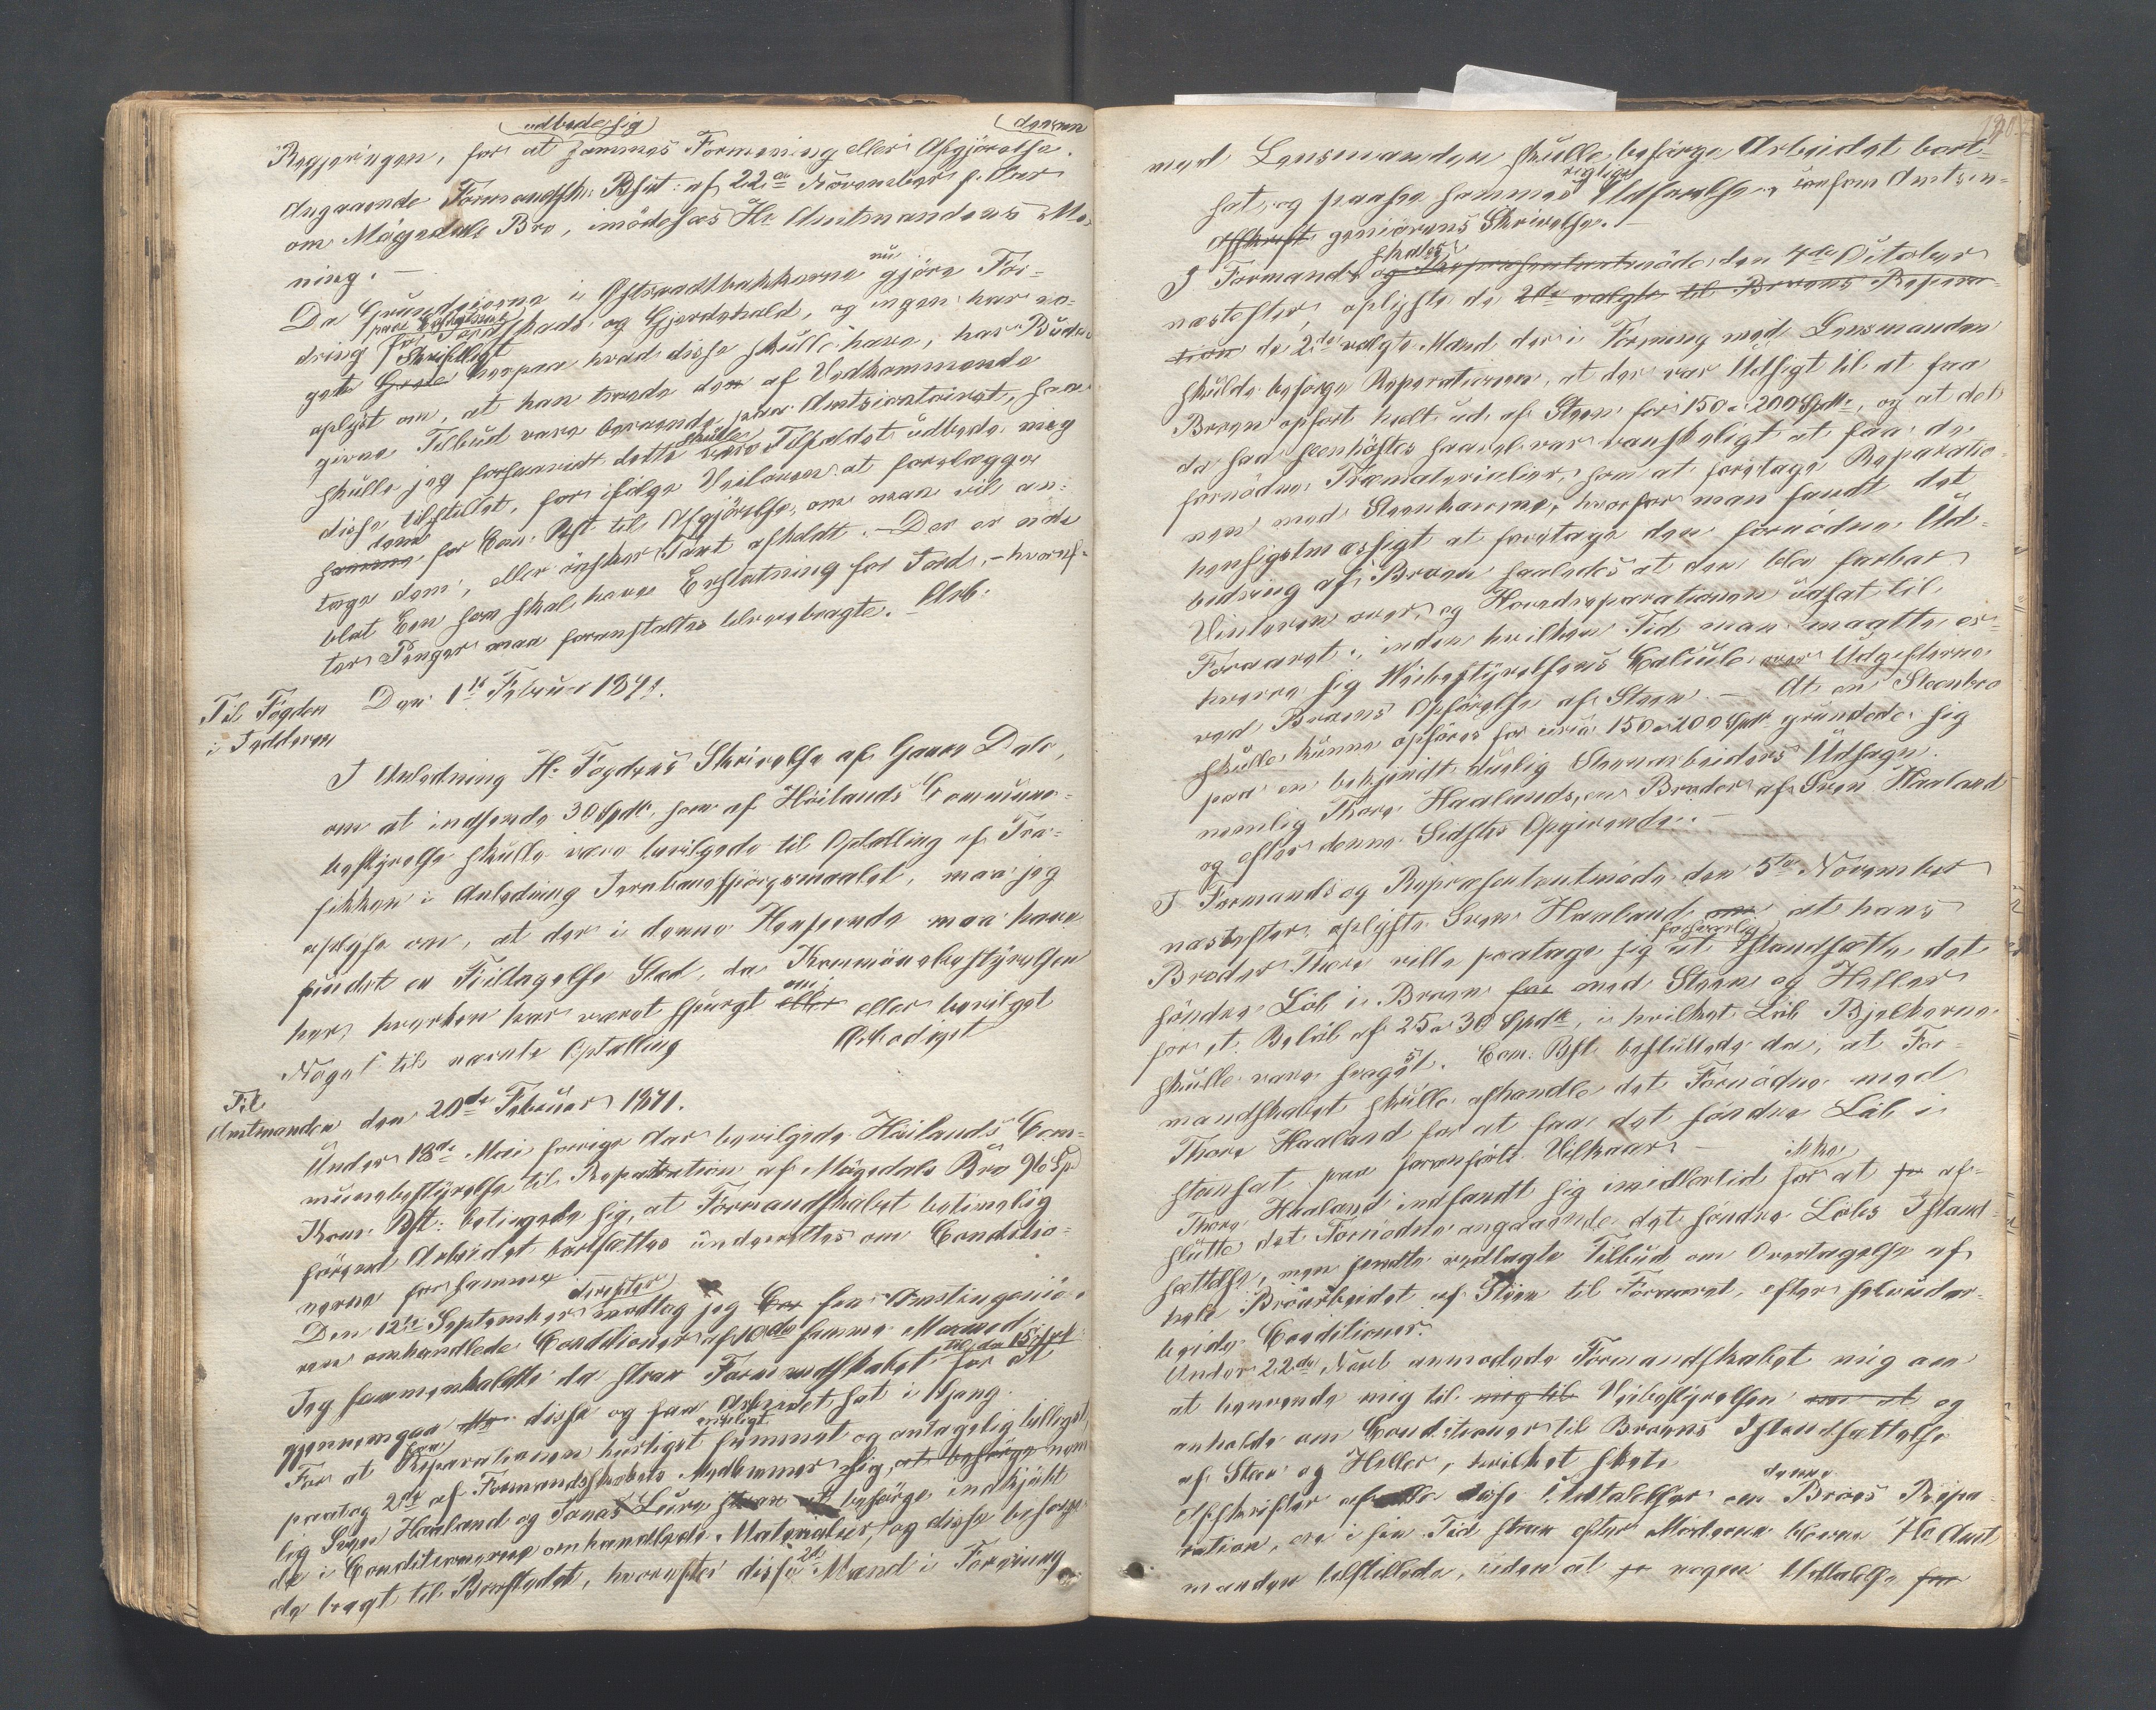 udbede sig derom
Regjeringen, for at sammes Formening eller Afgjörelse.
Angaaende Formandsk: Besl: af 22de November f. Aar
om Mögedals Bro, imödesees Hr Amtmandens Me-
ning. –
Da Grundeierne i Asteraadtbakkerne nu gjöre For-
dring paa Erstatning for Jordskade og Gjerdehold, og ingen har no-
get skriftligt herpaa hvad disse skulle have, har Buden
oplyst om, at han troede den af Vedkommende
givne Tilbud vare beroende paa Amtscontoiret, saa
skulle jeg forsaavidt dette skulle være Tilfældet udbede mig
disse tilstillet, for ifölge Veiloven at forelægge
samme dem for Com. Best. til Afgjörelse, om man vil an-
tage dem, eller önsker Taxt afholdt. – Der er ikke
blot Een som skal have Erstatning for Jord, – hvoref-
ter Penger maa foranstaltes tilveiebragte. Ærb.
Til Fogden Den 1te Februar 1871.
i Jedderen
I Anledning Hr Fogdens Skrivelse af Gaars Dato,
om at indsende 30 Spdlr, som af Höilands Commune-
bestyrelse skulle være bevilgede til Optælling af Tra-
fikken i Anledning Jernbanespörgsmaalet, maa jeg
oplyse om, at der i denne Henseende maa have
fundet en Feiltagelse Sted, da Kommunebestyrelsen
her hverken har været spurgt om eller eller bevilget
Noget til nævnte Optælling Ærbödigst
Til
Amtmanden den 20de Februar 1871.
Under 18de Mai forrige Aar bevilgede Höilands Com-
munebestyrelse til Reparation af Mögedals Bro 96 Spd
Kom. Best: betingede sig, at Formandskabet betimelig
förend Arbeidet bortsættes underrettes om Conditio-
nerne for samme
Den 12te September derefter modtog jeg fra Amtsingeniö-
ren omhandlede Conditioner af 10de samme Maaned.
Jeg sammenkaldte da strax Formandskabet til den 15de for at
gjennemgaa disse og faa Arbeidet sat i Gang.
For at faa Reparationen hurtigst muligt fremmet og antagelig billigst,
paatog 2de af Formandskabets Medlemmer sig, at besörge nem-
lig Sven Haaland og Jonas Lura at besörge indkjöbt
de i Conditionerne omhandlede Materialier, og disse besörge-
de bragt til Brostedet, hvorefter disse 2de Mænd i Forening
180.
med Lensmanden skulle besörge Arbeidet bort-
sat, og paasee sammes rigtige Udförelse, saasom Amtsin-
Afskrift geniörens Skrivelse. –
I Formandskabs og Repræsentantmöde den 4de October
næstefter, oplyste de 2de valgte til Broens Repera-
tion de 2de valgte Mænd der i Forening med Lensmanden
skulde besörge Reparationen, at der var Udsigt til at faa
Broen opfört heelt ud af Steen for 150 a 200 Spdlr, og at det
da saa seenhöstes saavel var vanskeligt at faa de
fornödne Træmaterialier, som at foretage Reparatio-
nen med Steenkarrene, hvorfor man fandt det
hensigtsmæssigt at foretage den fornödne Ud-
bedring af Broen saaledes at den blev farbar
Vinteren over, og Hovedreparationen udsat til
Foraaret, inden hvilken Tid man maatte er-
hverve sig Veibestyrelsens Calcule over Udgifterne
ved Broens Opförelse af Steen. – At en Steenbro
skulle kunne opföres for circa 150 a 200 Spdlr grundede sig
paa en bekjendt duelig Steenarbeiders Udsagn
nemlig Thore Haalands, en Broder af Sven Haaland
og efter denne Sidstes Opgivende. –
I Formands og Repræsentantmöde den 5te November
næstefter, oplyste Sven Haaland om at hans
Broder Thore ville paatage sig forsvarlig at istandsætte det
söndre Löb i Broen for med Steen og Heller
for et Belöb af 25 a 30 Spdlr, i hvilket Löb Bjelkerne
skulle være svagest. Com. Best. besluttede da, at For-
mandskabet skulle afhandle det Fornödne med
Thore Haaland for at faa det söndre Löb i
standsat paa forannförte Vilkaar –
Thore Haaland indfandt sig imidlertid ikke for at af-
slutte det Fornödne angaaende det söndre Löbs Istand-
sættelse, men sendte vedlagte Tilbud om Overtagelse af
hele Broarbeidet af Steen til Foraaret, efter selvudar-
beide Conditioner.
Under 22de Novb anmodede Formandskabet mig om
at henvende mig til mig til Veibestyrelsen om at og
anholde om Conditioner til Broens Istandsættelse
af Steen og Heller, hvilket skete
Afskrifter af alle disse Udtalelser om denne Broes Repa-
ration, ere i sin Tid strax efter Möderne blevne Hr Amt
manden tilstillede, uden at nogen Udtalelse fra